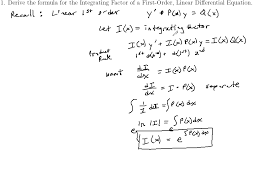 1. Derive the formula for the Integrating Factor of a First-Order, Linear Differential Equation.
Recall: Linear 1st order y' + P(x) y = Q(x)
Let I(x) = integrating factor
I(x) y' + I(x) P(x) y = I(x) Q(x)
Product Rule 1st d(2nd) + d(1st) 2nd
Want dI/dx = I P(x)
dI/dx = I · P(x) separate
∫ 1/I dI = ∫ P(x) dx
e^ ln |I| = e^ ∫ P(x) dx
I(x) = e^ ∫P(x) dx